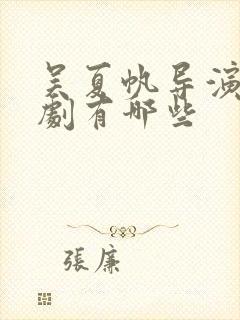 吴夏帆导演
劇有哪些
張廉